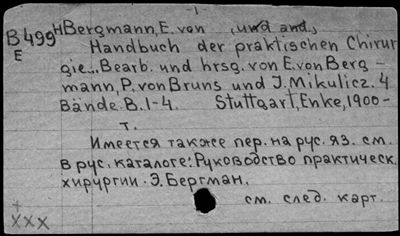 -1-
B499 HBergmann, E. von , und and.,
E Handbuch der praktischen Chirur
gie... Bearb. und hrsg. von E. von Berg-
mann, P. von Bruns und J. Mikulicz. 4
Bände. B. 1-4. Stuttgart, Enke, 1900-
т.
Имеется также пер. на рус. яз. см.
в рус. каталоге: Руководство практическ.
хирургии. Э. Бергман.
см. след. карт.
+
XXX